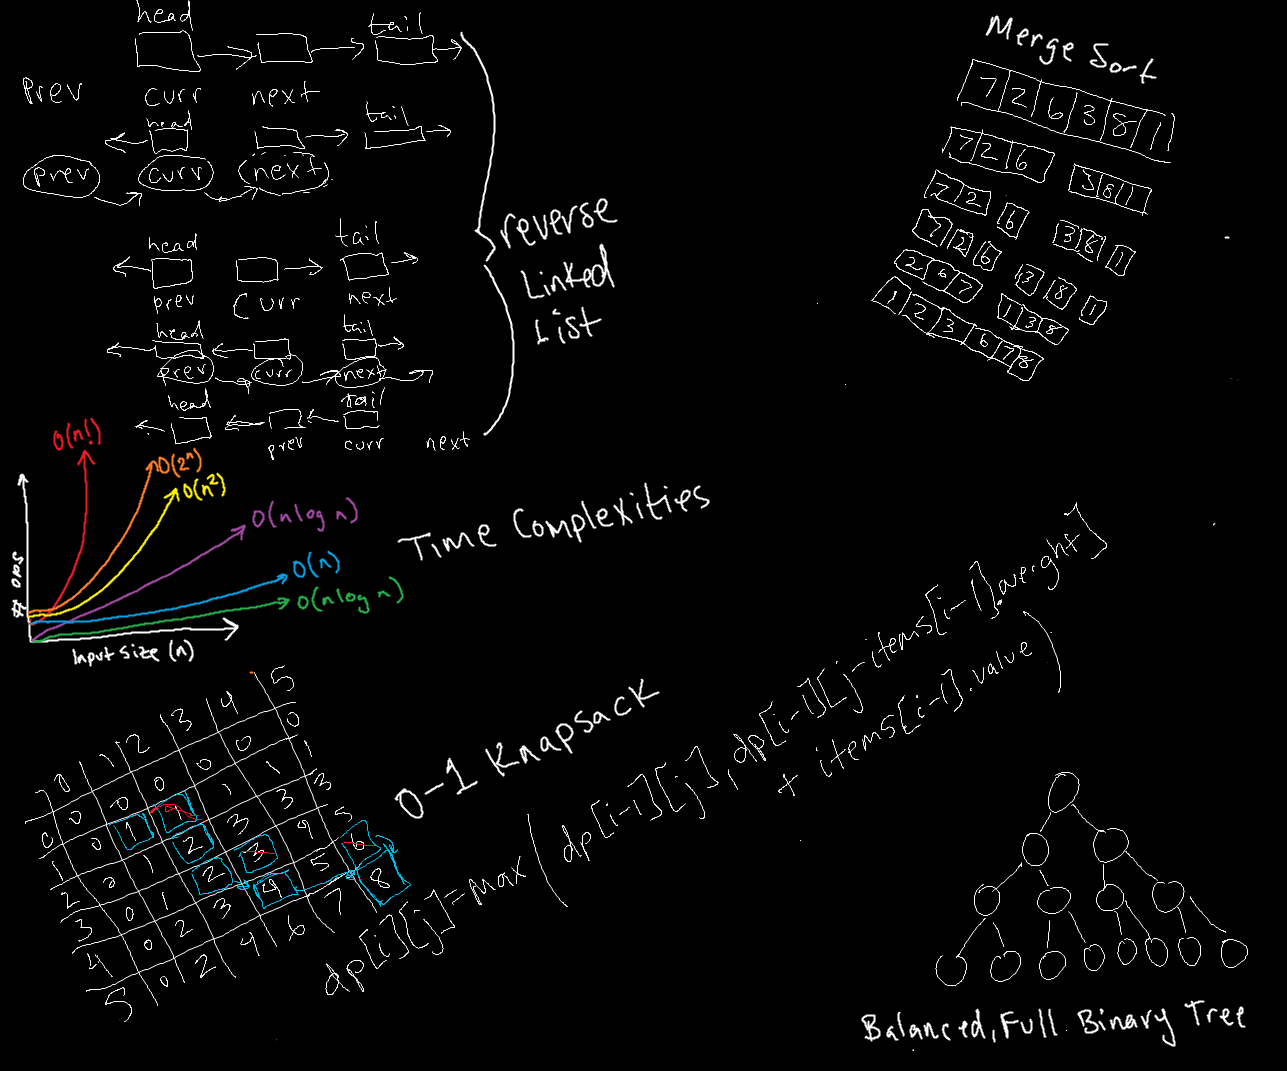 head
tail
prev curr next
head
tail
prev curr next
head
tail
prev curr next
head
tail
prev curr next
head
tail
prev curr next
reverse
Linked
List
Merge Sort
7 2 6 3 8 1
7 2 6 3 8 1
7 2 6 3 8 1
7 2 6 3 8 1
2 6 7 1 3 8
1 2 3 6 7 8
O(n!)
O(2ⁿ)
O(n²)
O(nlog n)
O(n)
O(nlog n)
# ops
Input size (n)
Time Complexities
0 1 2 3 4 5
0 0 0 0 0 0 0
1 0 1 1 1 1 1
2 0 1 2 3 3 3
3 0 1 2 3 4 5
4 0 2 3 4 5 6
5 0 2 4 6 7 8
0-1 Knapsack
dp[i][j]=max(dp[i-1][j], dp[i-1][j-items[i-1].weight]
+ items[i-1].value)
Balanced, Full Binary Tree